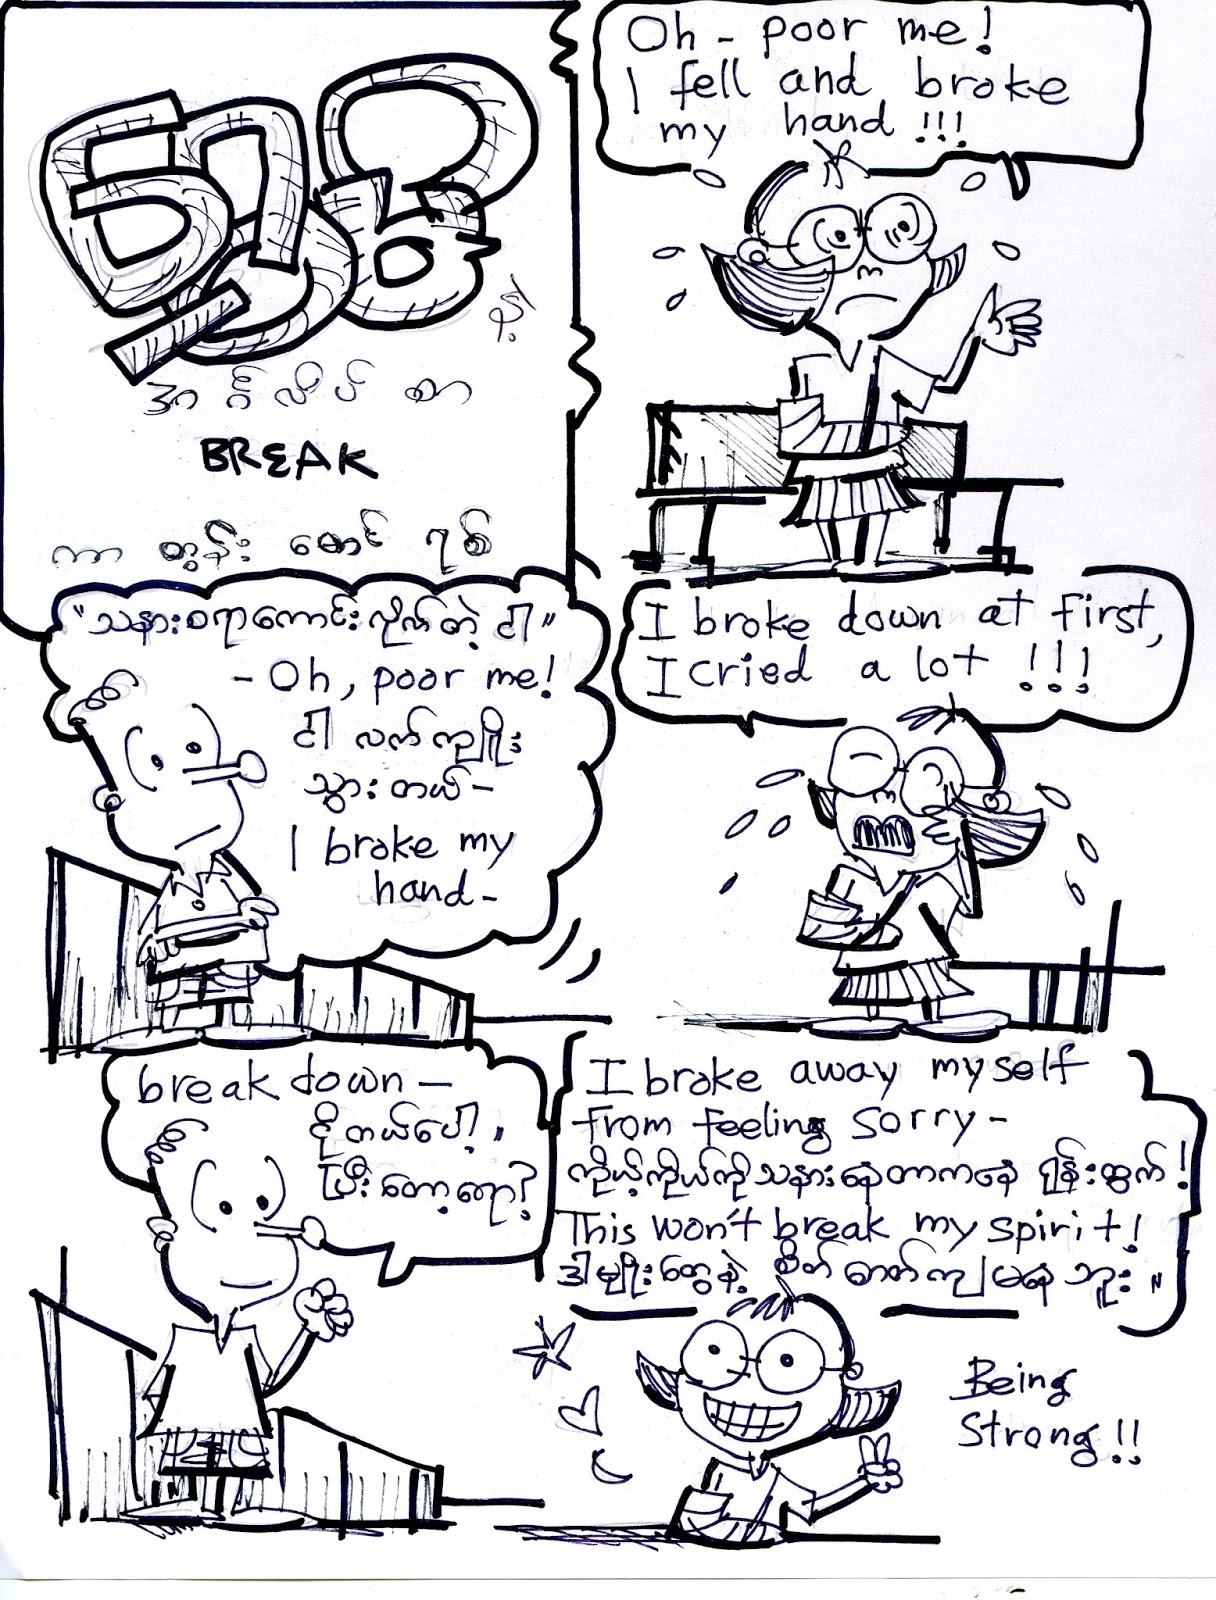 အင်္ဂလိပ် စာ
BREAK
ကာ တွန်း စောင် ရစ်
Oh - poor me!
I fell and broke
my hand !!!
"သနားစရာကောင်းလိုက်တဲ့ ငါ"
- Oh, poor me!
ငါ လက်ကျိုး
သွား တယ် -
I broke my
hand -
I broke down at first,
I cried a lot !!!
break down -
ငိုတယ်ပေါ့။
ပြီးတော့ရော?
I broke away myself
from feeling sorry -
ကိုယ့်ကိုယ်ကိုသနားနေတာကနေ ရုန်းထွက်!
This won't break my spirit!
ဒါမျိုးတွေနဲ့ စိတ်ဓာတ်ကျမနေဘူး။
Being
Strong!!